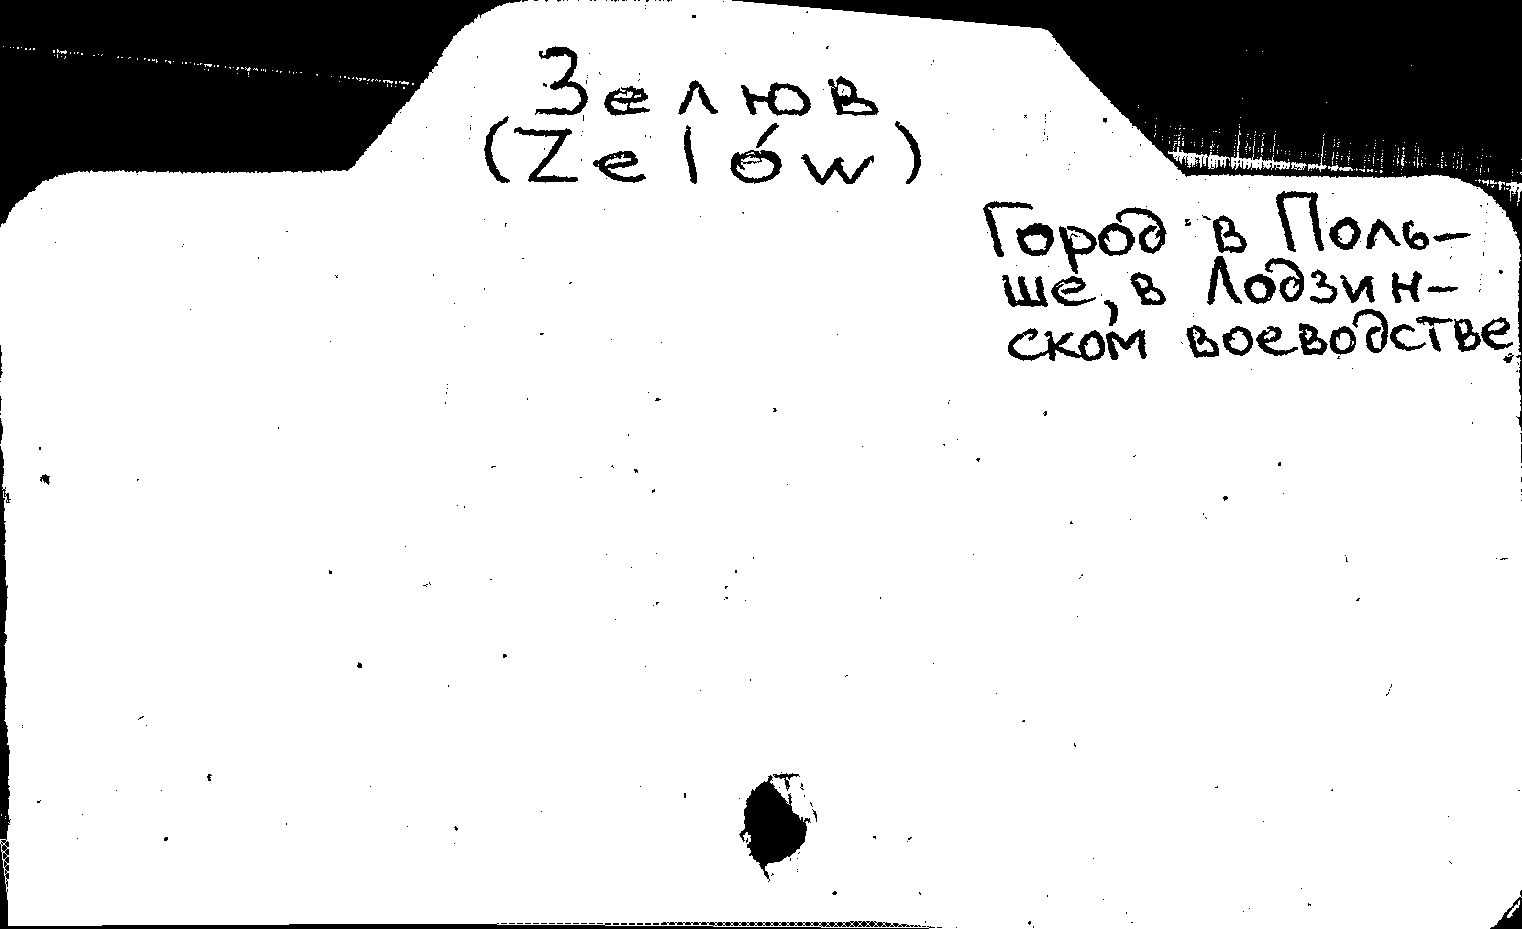 Зелюв
(Zelów)
Город в Поль-
ше, в Лодзин-
ском воеводстве.